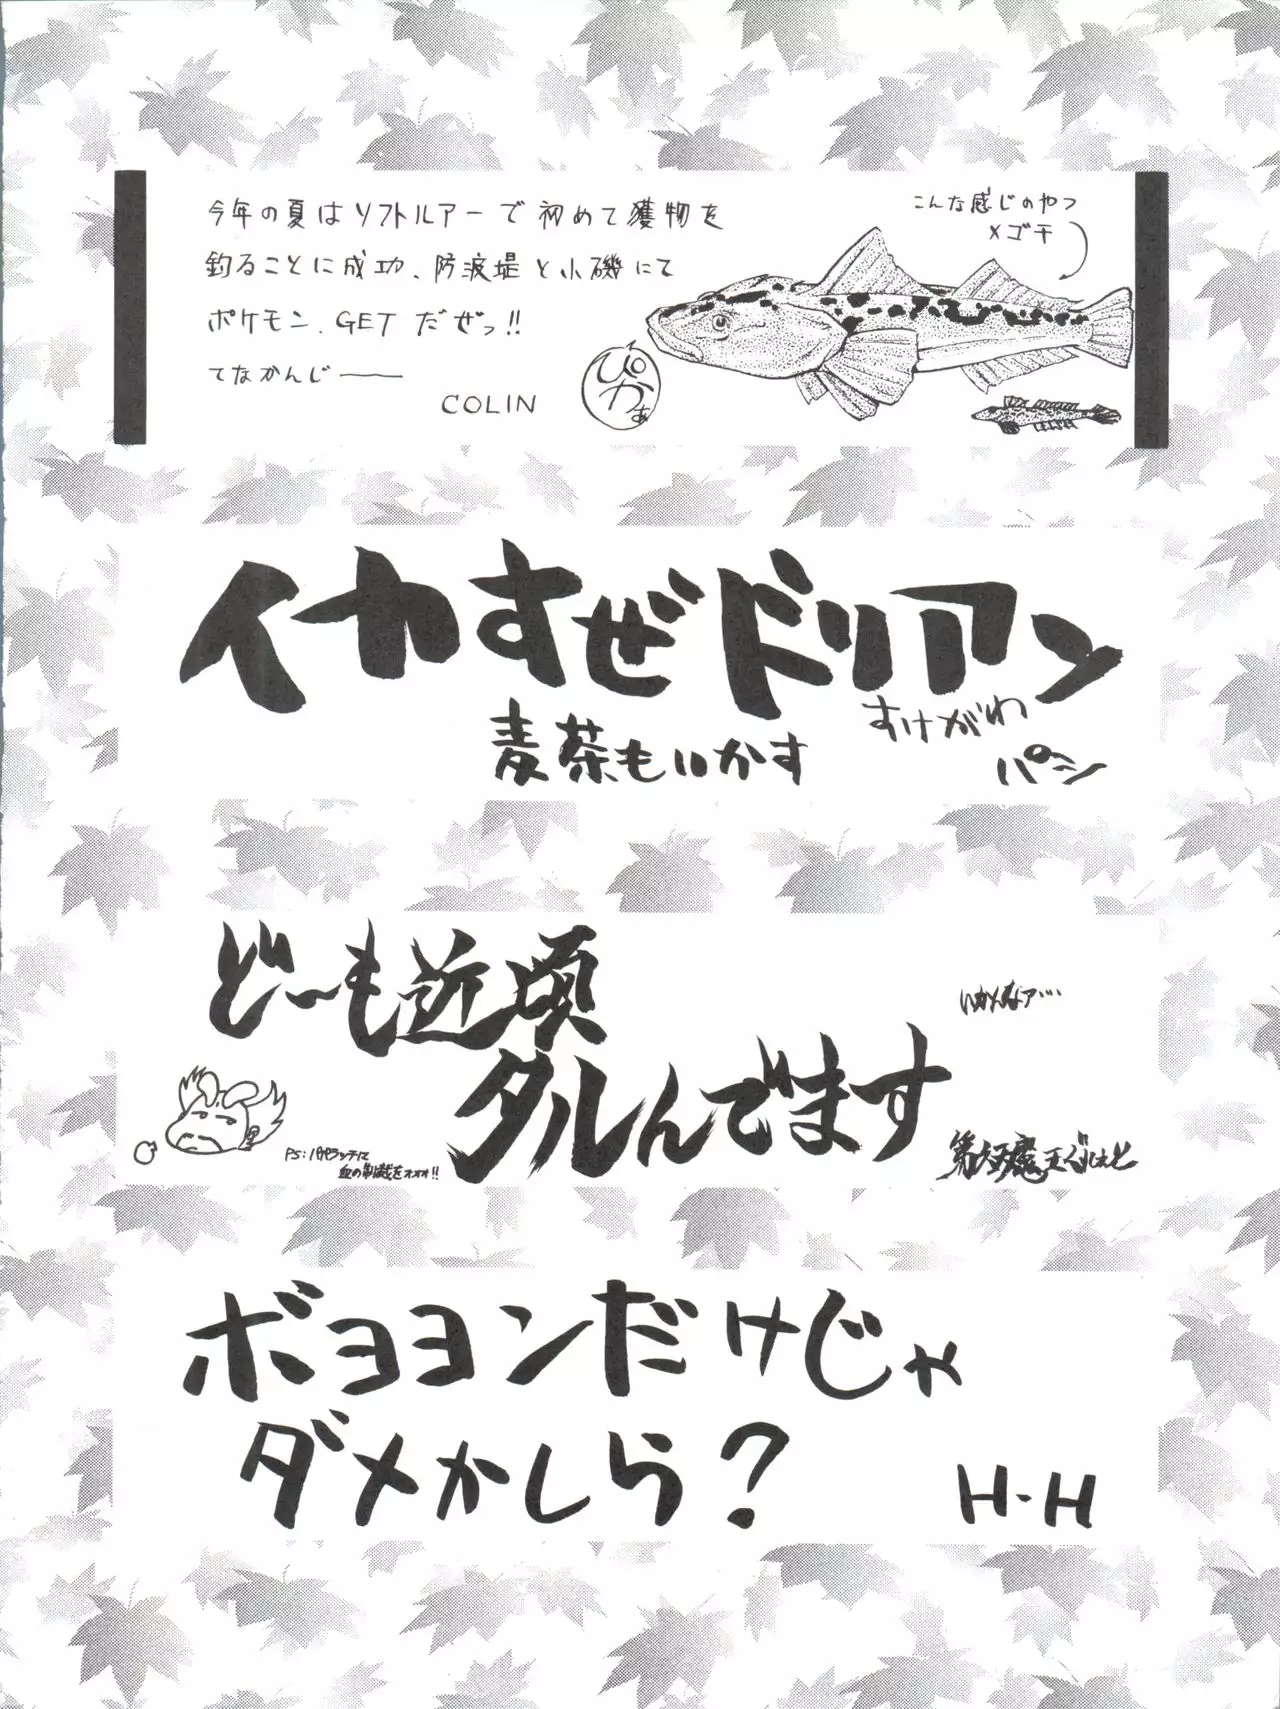 今年の夏はソフトルアーで初めて獲物を
釣ることに成功、防波堤と小磯にて
ポケモン、GETだぜっ!!
てなかんじ――
COLIN
ぴかぁ
こんな感じのやつ
メゴチ
イカすぜドリアン
麦茶もいかす
すけがわ
パン
どーも近頃
タルんでます
いかんなァ…
PS:
血の制裁をォォォ!!
ボヨヨンだけじゃ
ダメかしら?
H-H